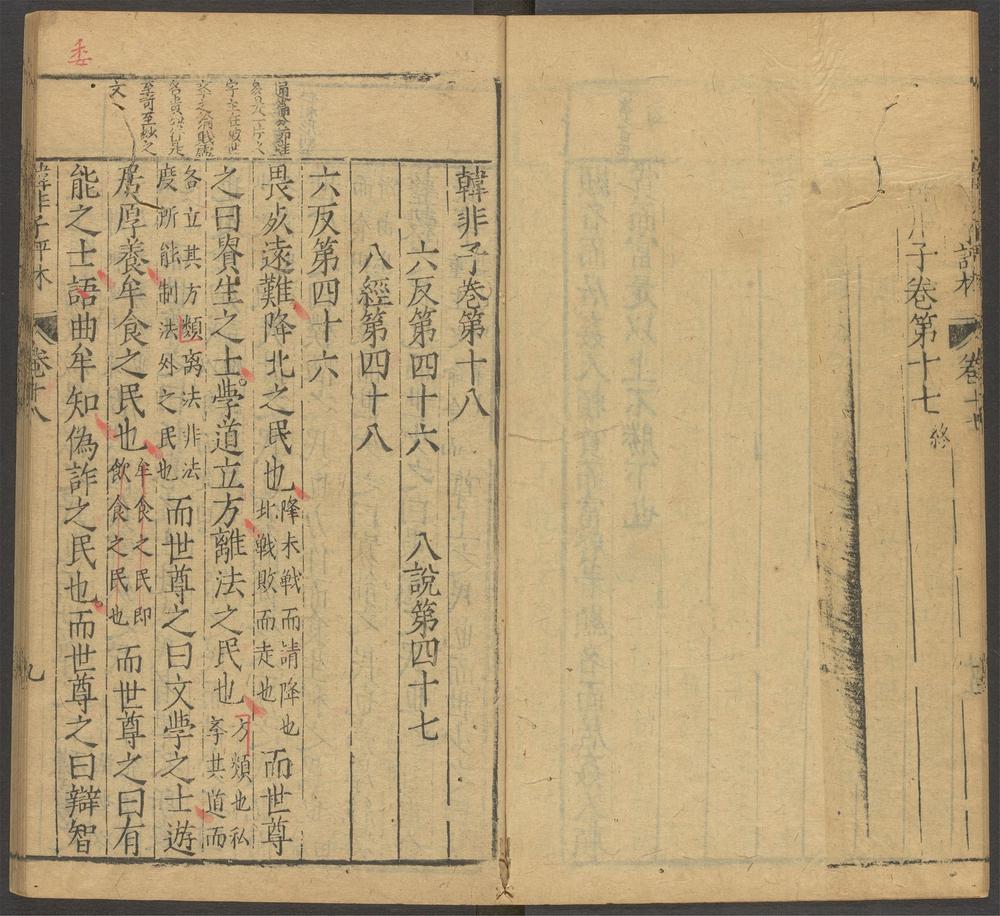 子卷第十七終
卷十七
韓非子卷第十八
六反第四十六 八說第四十七
八經第四十八
六反第四十六
畏死遠難降北之民也降未戰而請降也北戰敗而走也而世尊
之曰貴生之士學道立方離法之民也方類也私學其道而
各立其方類離法非法度所能制法外之民也而世尊之曰文學之士遊
居厚養牟食之民也牟食之民即飲食之民也而世尊之曰有
能之士語曲牟知偽詐之民也而世尊之曰辯智
韓非子評林 卷十八 九
至奇至妙之
文
委